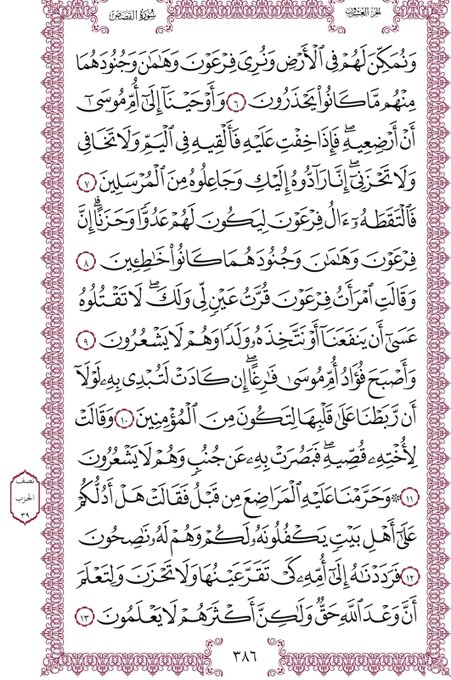 الجزء العشرون
سورة القصص
وَنُمَكِّنَ لَهُمْ فِي ٱلْأَرْضِ وَنُرِيَ فِرْعَوْنَ وَهَـٰمَـٰنَ وَجُنُودَهُمَا
مِنْهُم مَّا كَانُوا۟ يَحْذَرُونَ ٦ وَأَوْحَيْنَآ إِلَىٰٓ أُمِّ مُوسَىٰٓ
أَنْ أَرْضِعِيهِ ۖ فَإِذَا خِفْتِ عَلَيْهِ فَأَلْقِيهِ فِي ٱلْيَمِّ وَلَا تَخَافِي
وَلَا تَحْزَنِيٓ ۖ إِنَّا رَآدُّوهُ إِلَيْكِ وَجَاعِلُوهُ مِنَ ٱلْمُرْسَلِينَ ٧
فَٱلْتَقَطَهُۥٓ ءَالُ فِرْعَوْنَ لِيَكُونَ لَهُمْ عَدُوًّا وَحَزَنًا ۗ إِنَّ
فِرْعَوْنَ وَهَـٰمَـٰنَ وَجُنُودَهُمَا كَانُوا۟ خَـٰطِـِٔينَ ٨
وَقَالَتِ ٱمْرَأَتُ فِرْعَوْنَ قُرَّتُ عَيْنٍ لِّي وَلَكَ ۖ لَا تَقْتُلُوهُ
عَسَىٰٓ أَن يَنفَعَنَآ أَوْ نَتَّخِذَهُۥ وَلَدًا وَهُمْ لَا يَشْعُرُونَ ٩
وَأَصْبَحَ فُؤَادُ أُمِّ مُوسَىٰ فَـٰرِغًا ۖ إِن كَادَتْ لَتُبْدِي بِهِۦ لَوْلَآ
أَن رَّبَطْنَا عَلَىٰ قَلْبِهَا لِتَكُونَ مِنَ ٱلْمُؤْمِنِينَ ١٠ وَقَالَتْ
لِأُخْتِهِۦ قُصِّيهِ ۖ فَبَصُرَتْ بِهِۦ عَن جُنُبٍ وَهُمْ لَا يَشْعُرُونَ
١١ ۞ وَحَرَّمْنَا عَلَيْهِ ٱلْمَرَاضِعَ مِن قَبْلُ فَقَالَتْ هَلْ أَدُلُّكُمْ
عَلَىٰٓ أَهْلِ بَيْتٍ يَكْفُلُونَهُۥ لَكُمْ وَهُمْ لَهُۥ نَـٰصِحُونَ
١٢ فَرَدَدْنَـٰهُ إِلَىٰٓ أُمِّهِۦ كَيْ تَقَرَّ عَيْنُهَا وَلَا تَحْزَنَ وَلِتَعْلَمَ
أَنَّ وَعْدَ ٱللَّهِ حَقٌّ وَلَـٰكِنَّ أَكْثَرَهُمْ لَا يَعْلَمُونَ ١٣
نصف
الحزب
٣٩
٣٨٦